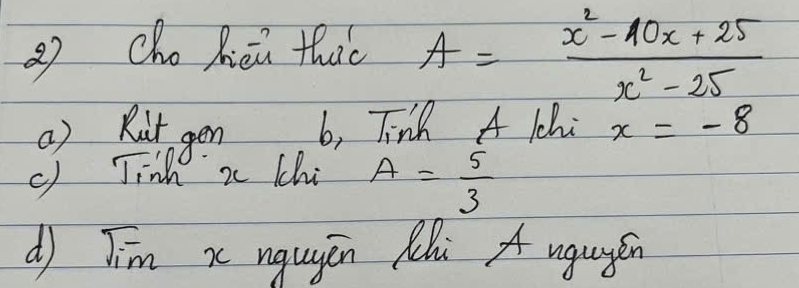 2) Cho biểu thức A = (x² - 10x + 25)/(x² - 25)
a) Rút gọn b, Tính A khi x = -8
c) Tính x khi A = 5/3
d) Tìm x nguyên khi A nguyên